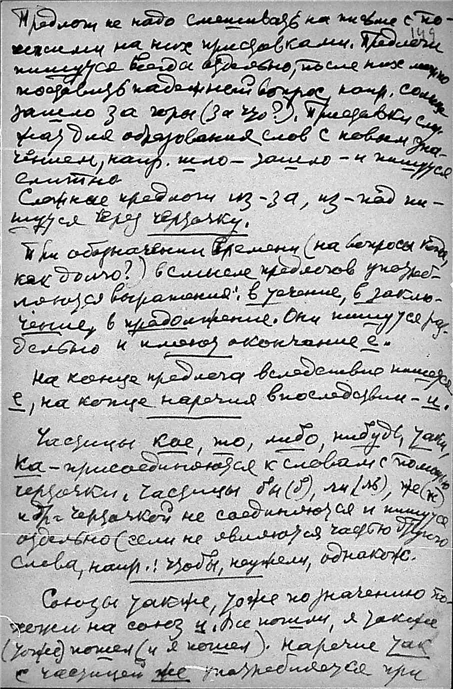 Предлоги не надо смешивать на письме с по-
хожими на них приставками. Предлоги
пишутся всегда отдельно, после них можно
поставить падежный вопрос, напр. солнце
зашло за горы (за что?). Приставки слу-
жат для образования слов с новым зна-
чением, напр. шло – зашло – и пишутся
слитно
Сложные предлоги из-за, из-под пи-
шутся через черточку.
При обозначении времени (на вопросы когда,
как долго?) в смысле предлогов употреб-
ляются выражения: в течение, в заклю-
чение, в продолжение. Они пишутся раз-
дельно и имеют окончание е.
На конце предлога вследствие пишется
е, на конце наречия впоследствии – и.
Частицы кое, то, либо, нибудь, таки,
ка – присоединяются к словам с помощью
черточки. Частицы бы (б), ли (ль), же (ж)
и др. черточкой не соединяются и пишутся
отдельно (если не являются частью другого
слова, напр.: чтобы, неужели, однакож.
Союзы также, тоже по значению по-
хожи на союз и. Все пошли, я также
(тоже) пошел (и я пошел). Наречие так
с частицей же употребляется при